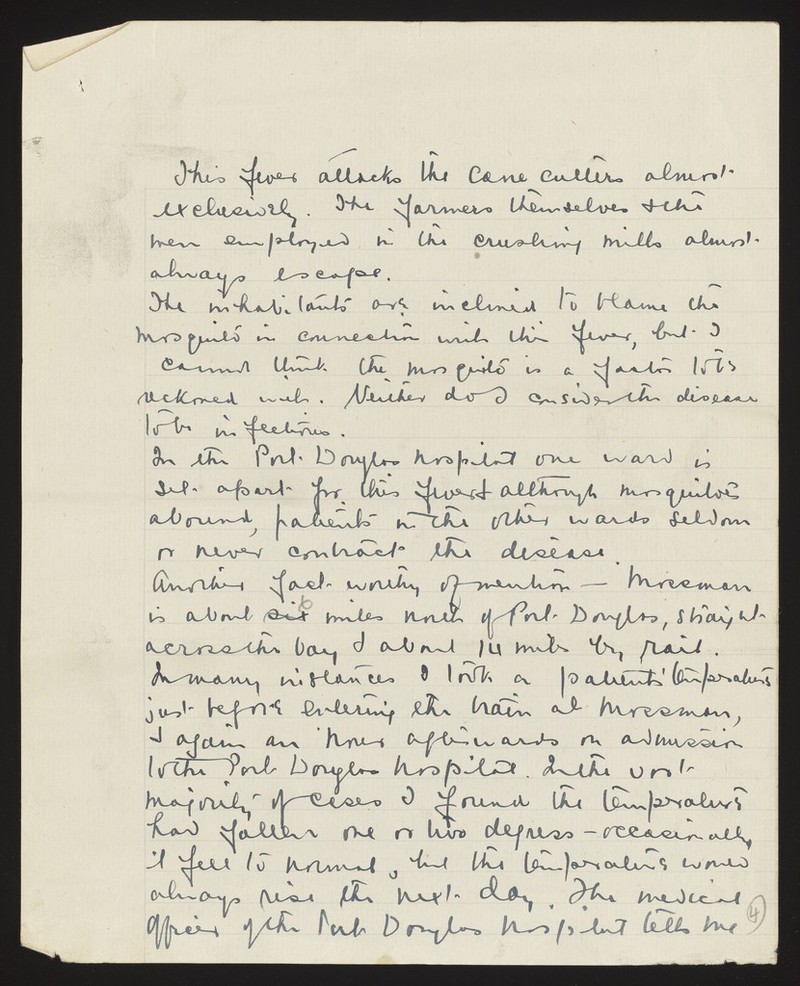 This fever attacks the cane cutters almost
exclusively. The farmers themselves & the
men employed in the crushing mills almost
always escape.
The inhabitants are inclined to blame the
mosquito in connection with this fever, but I
cannot think the mosquito is a factor to be
reckoned with. Neither do I consider the disease
to be infectious.
In the Port Douglas hospital one ward is
set apart for this fever & although mosquitoes
abound, patients in the other wards seldom
or never contract the disease.
Another fact worthy of mention — Mossman
is about six 6 miles north of Port Douglas, straight
across the bay & about 14 miles by rail.
In many instances I took a patients' temperature
just before entering the train at Mossman,
& again an hour afterwards on admission
to the Port Douglas hospital. In the vast
majority of cases I found the temperature
had fallen one or two degrees — occasionally
it fell to normal, but the temperature would
always rise the next day. The medical
officer of the Port Douglas hospital tells me
4